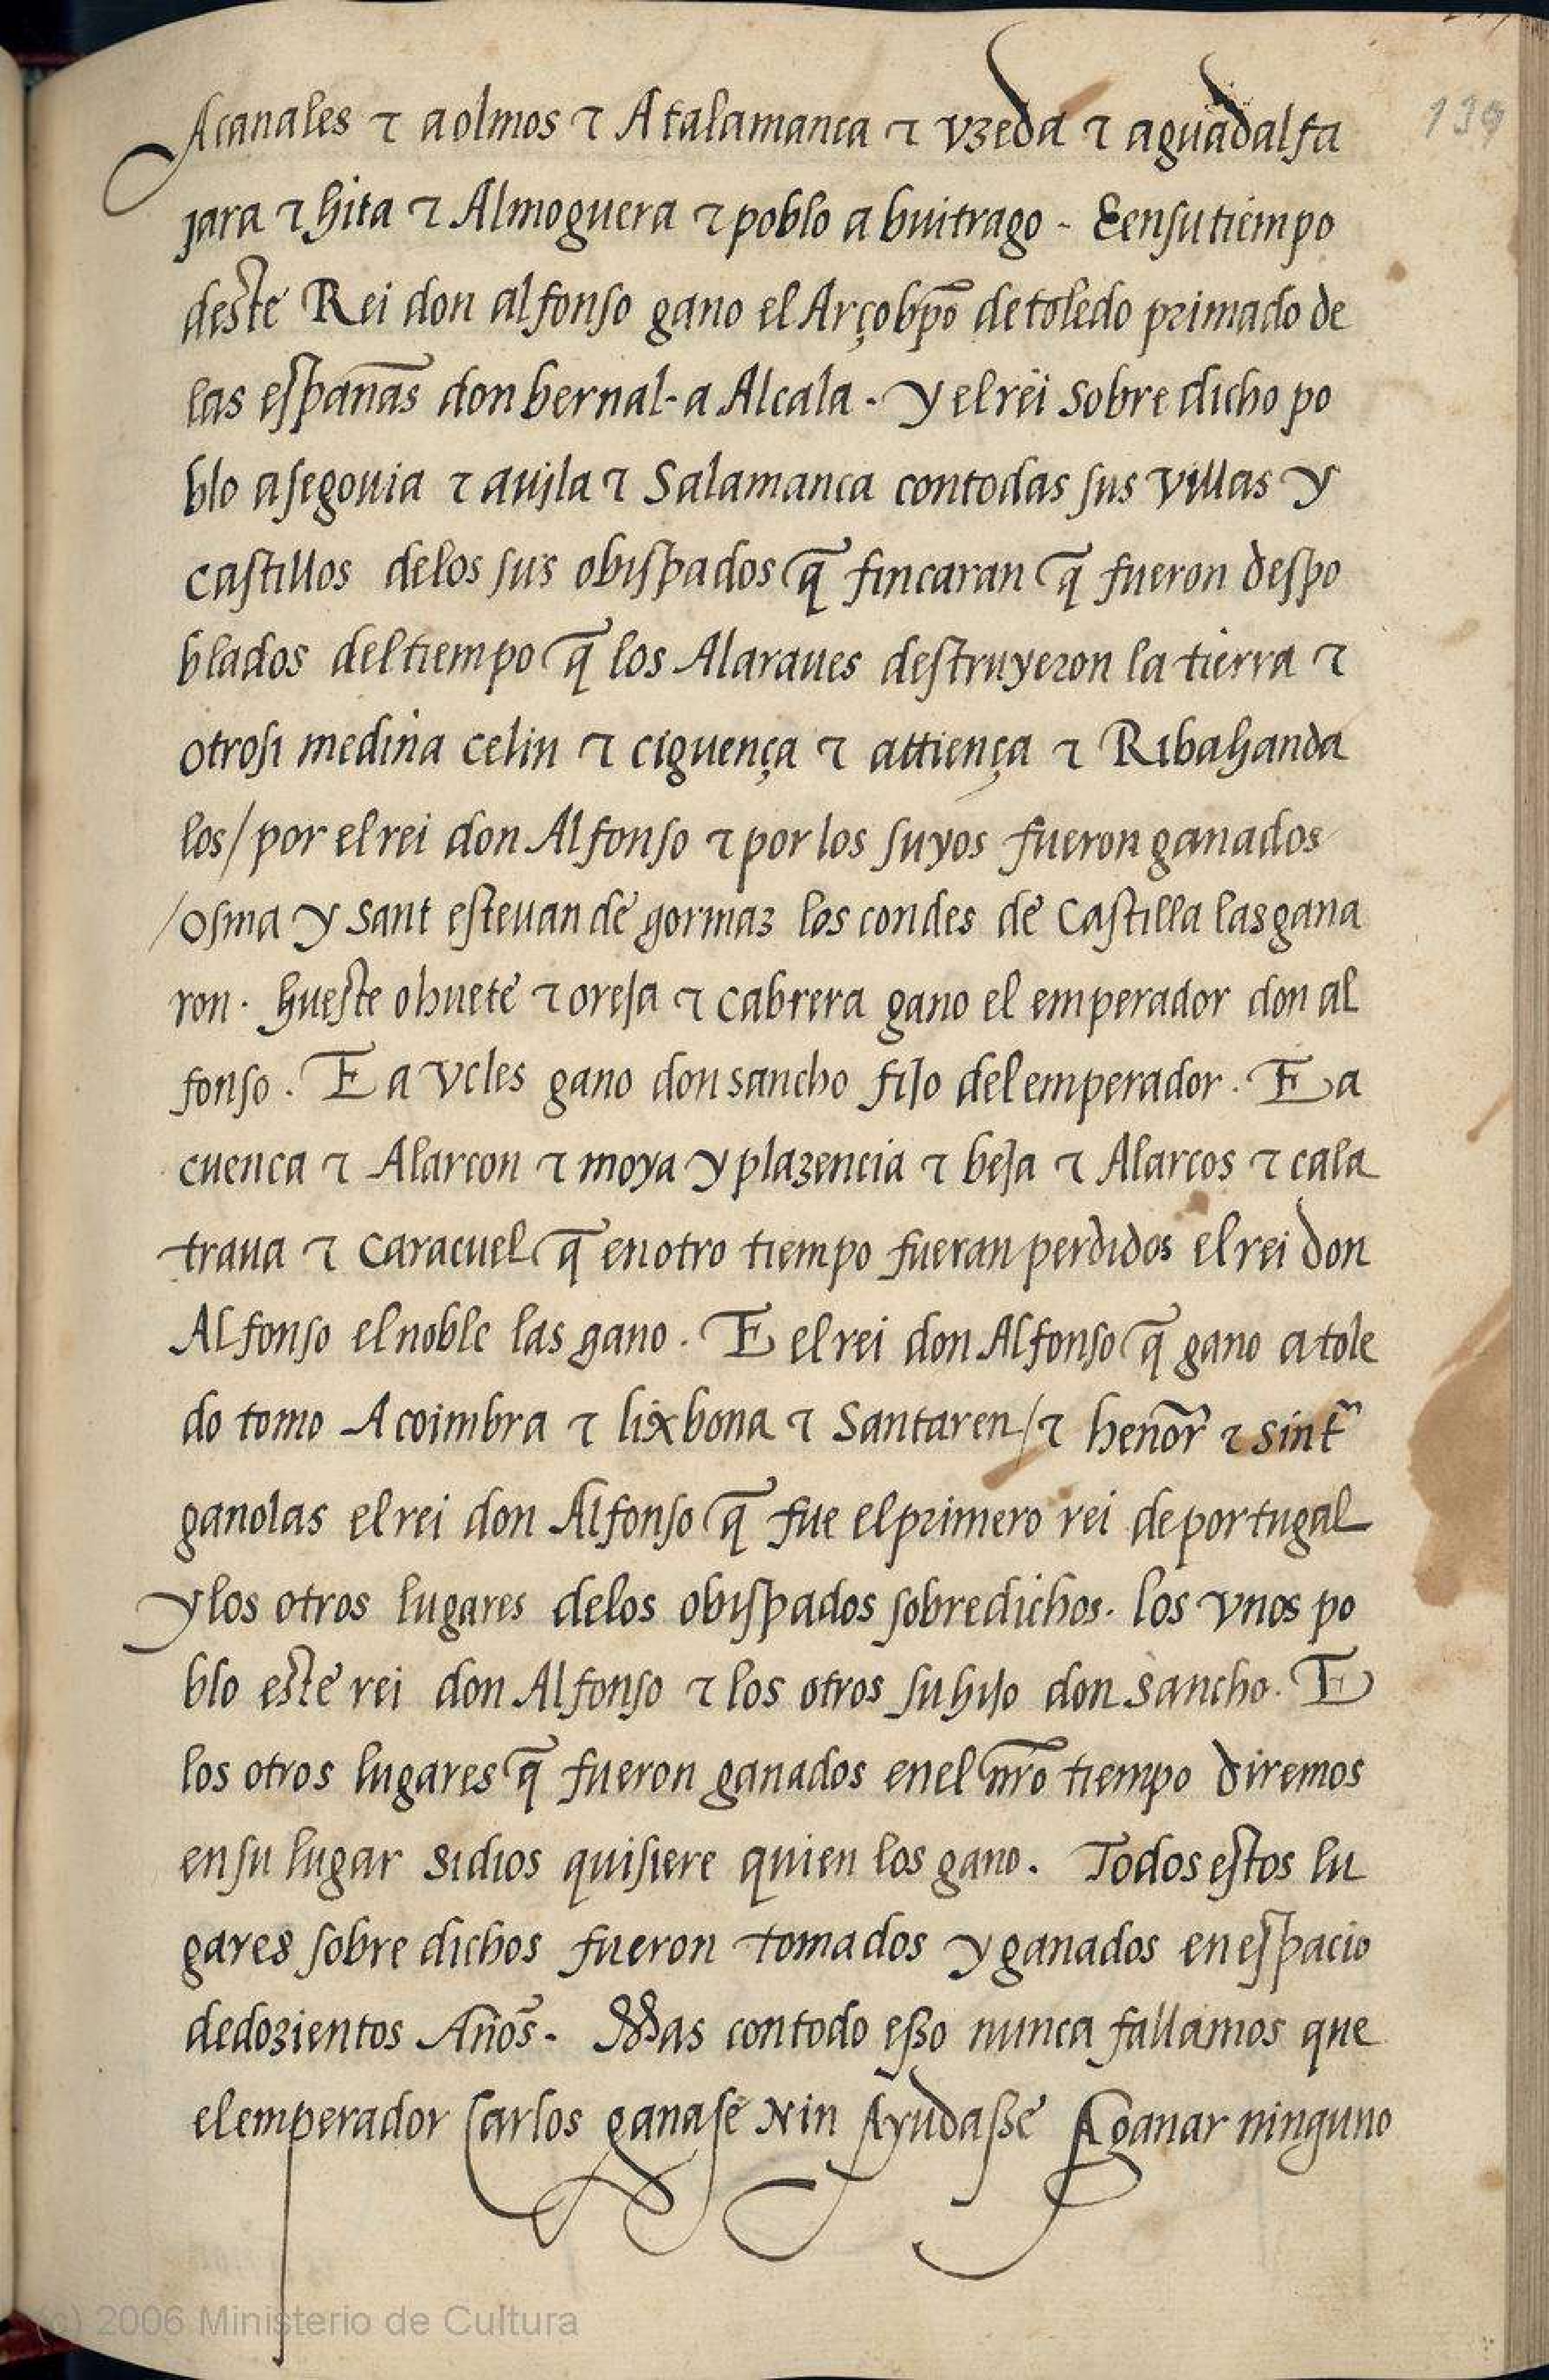 139
Acanales ⁊ a olmos ⁊ Atalamanca ⁊ vzeda ⁊ aguadalfa
jara ⁊ hita ⁊ Almoguera ⁊ poblo a buitrago - E ensu tiempo
deste Rei don alfonso gano el Arçobp̄o de toledo primado de
las espan̄as don bernal - a Alcala - y el rei sobre dicho po
blo asegouia ⁊ auila ⁊ Salamanca contodas sus villas y
castillos delos sus obispados q̄ fincaran q̄ fueron despo
blados del tiempo q̄ los Alaraues destruyeron la tierra ⁊
otrosi medina celin ⁊ ciguença ⁊ attiença ⁊ Ribahanda
los/ por el rei don Alfonso ⁊ por los suyos fueron ganados
/osma y sant esteuan de gormaz los condes de Castilla las gana
ron. hueste o huete ⁊ oreja ⁊ cabrera gano el emperador don al
fonso. E a vcles gano don sancho fijo del emperador. E a
cuenca ⁊ Alarcon ⁊ moya y plazencia ⁊ beja ⁊ Alarcos ⁊ cala
traua ⁊ caracuel q̄ en otro tiempo fueran perdidos el rei don
Alfonso el noble las gano. E el rei don Alfonso q̄ gano a tole
do tomo Acoimbra ⁊ lixbona ⁊ Santaren/ ⁊ hen̄or ⁊ sint̄
ganolas el rei don Alfonso q̄ fue el primero rei de portugal
y los otros lugares delos obispados sobredichos. los vnos po
blo este rei don Alfonso ⁊ los otros su hijo don sancho. E
los otros lugares q̄ fueron ganados enel nr̄o tiempo diremos
en su lugar si dios quisiere quien los gano. Todos estos lu
gares sobre dichos fueron tomados y ganados en espacio
dedozientos An̄os. Mas contodo esso nunca fallamos que
el emperador Carlos ganase Nin Ayudasse Aganar ninguno
(c) 2006 Ministerio de Cultura